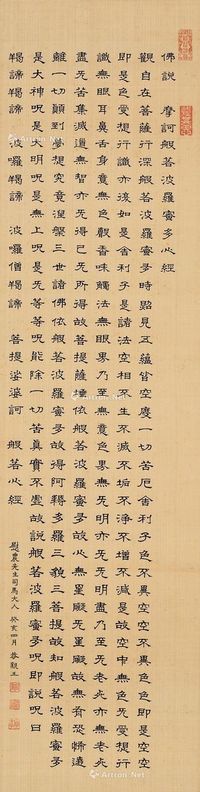 佛說　摩訶般若波羅蜜多心經
觀自在菩薩行深般若波羅蜜多時照見五蘊皆空度一切苦厄舍利子色不異空空不異色色即是空空
即是色受想行識亦復如是舍利子是諸法空相不生不滅不垢不淨不增不減是故空中無色无受想行
識無眼耳鼻舌身意無色聲香味觸法無眼界乃至無意色界無无明亦无无明盡乃至无老死亦無老死
盡无苦集滅道無智亦无得已无所得故菩提薩埵依般若波羅蜜多故心無罣礙无罣礙故無有恐怖遠
離一切顛到夢想究竟涅槃三世諸佛依般若波羅蜜多故得阿耨多羅三藐三菩提故知般若波羅蜜多
是大神咒是大明咒是無上咒是无等等咒能除一切苦真實不虛故說般若波羅蜜多咒即說咒曰
羯諦羯諦　波囉羯諦　波囉僧羯諦　菩提娑婆訶　般若心經
農先生司馬大人　癸亥四月